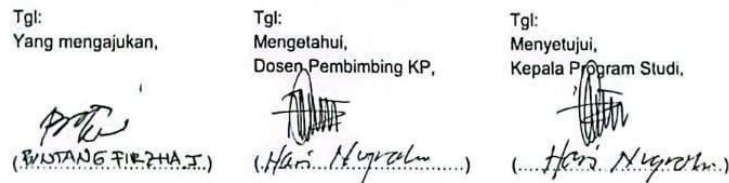 Tgl:
Yang mengajukan,
(BINTANG FIRZHA I.)
Tgl:
Mengetahui,
Dosen Pembimbing KP,
(Hari Nugroho)
Tgl:
Menyetujui,
Kepala Program Studi,
(Hari Nugroho)